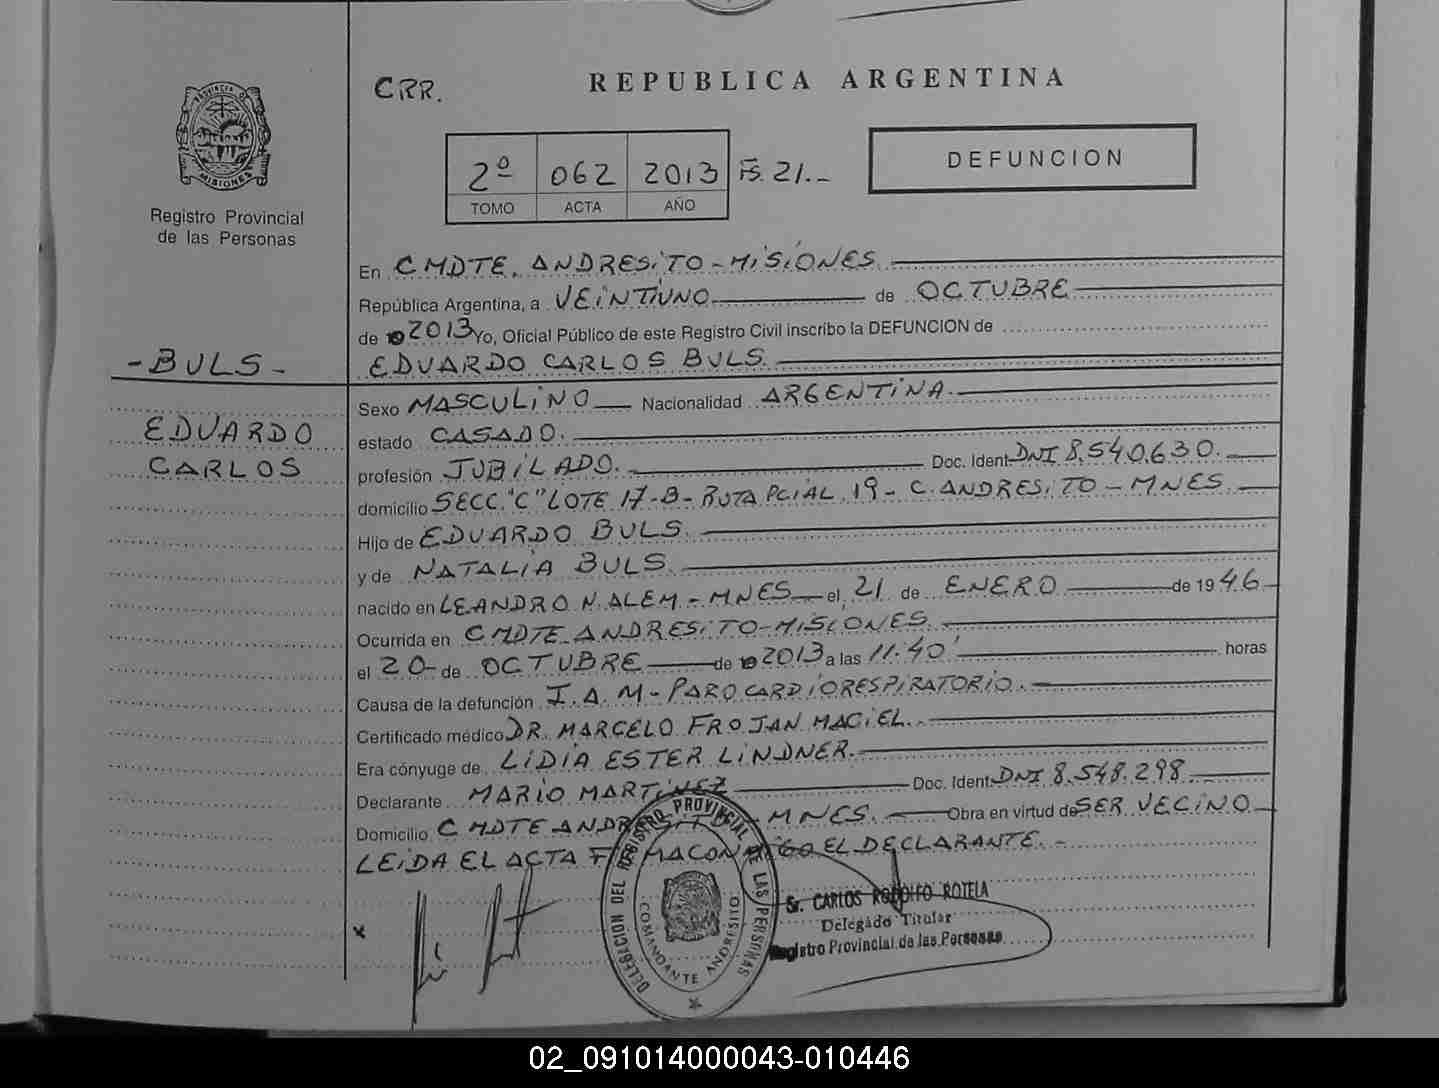 PROVINCIA DE
MISIONES
Registro Provincial
de las Personas
- BULS -
EDUARDO
CARLOS
CRR.
REPUBLICA ARGENTINA
2º 062 2013 FS. 21.-
TOMO ACTA AÑO
DEFUNCION
En CMDTE. ANDRESITO - MISIONES.
República Argentina, a VEINTIUNO de OCTUBRE
de 19 2013 Yo, Oficial Público de este Registro Civil inscribo la DEFUNCION de
EDUARDO CARLOS BULS.
Sexo MASCULINO Nacionalidad ARGENTINA.
estado CASADO.
profesión JUBILADO. Doc. Ident. DNI 8.540.630.
domicilio SECC. "C" LOTE 17-B- RUTA PCIAL. 19 - C. ANDRESITO - MNES.
Hijo de EDUARDO BULS.
y de NATALIA BULS.
nacido en LEANDRO N. ALEM - MNES el, 21 de ENERO de 19 46
Ocurrida en CMDTE ANDRESITO - MISIONES.
el 20 - de OCTUBRE de 19 2013 a las 11.40' horas
Causa de la defunción I. A. M - PARO CARDIORESPIRATORIO.
Certificado médico DR. MARCELO FROJAN MACIEL.
Era cónyuge de LIDIA ESTER LINDNER.
Declarante MARIO MARTINEZ Doc. Ident. DNI 8.548.298
Domicilio CMDTE ANDRESITO - MNES. Obra en virtud de SER VECINO
LEIDA EL ACTA FIRMA CONMIGO EL DECLARANTE. -
DELEGACION DEL REGISTRO PROVINCIAL DE LAS PERSONAS
COMANDANTE ANDRESITO
Sr. CARLOS RODOLFO ROTELA
Delegado Titular
Registro Provincial de las Personas
x
02_091014000043-010446